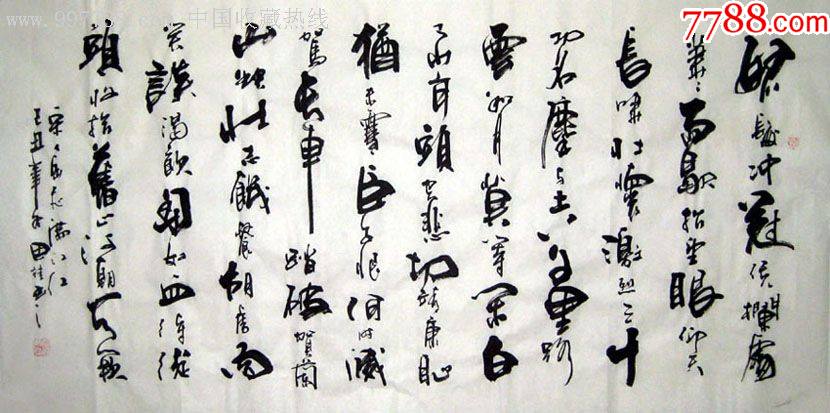 www.997788.com 中国收藏热线
7788.com
怒髮冲冠凭欄處
瀟〻雨歇抬望眼仰天
長嘯壯懷激烈三十
功名塵与土八千里路
雲和月莫等閑白
了少年頭空悲切靖康恥
猶未雪臣子恨何时滅
駕長車踏破賀蘭
山缺壯志飢餐胡虜肉
笑談渴飲匈奴血待從
頭收拾舊山河朝天闕
宋岳飛滿江红
己丑年